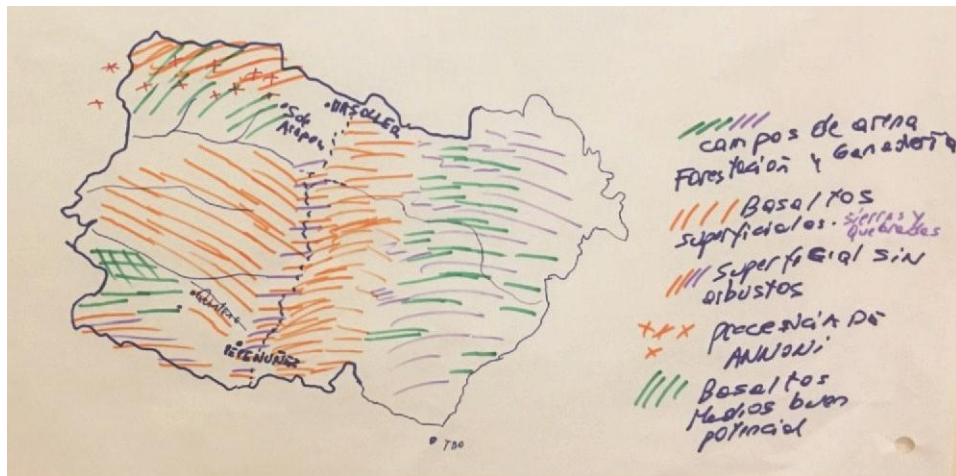 MASOLLER
Sdo
Arapey
PEPENUÑEZ
TBO
campos de arena
Forestación y Ganadería
Basaltos
superficiales. sierras y
quebradas
Superficial sin
arbustos
precencia De
ANNONi
Basaltos
Medios buen
potincial